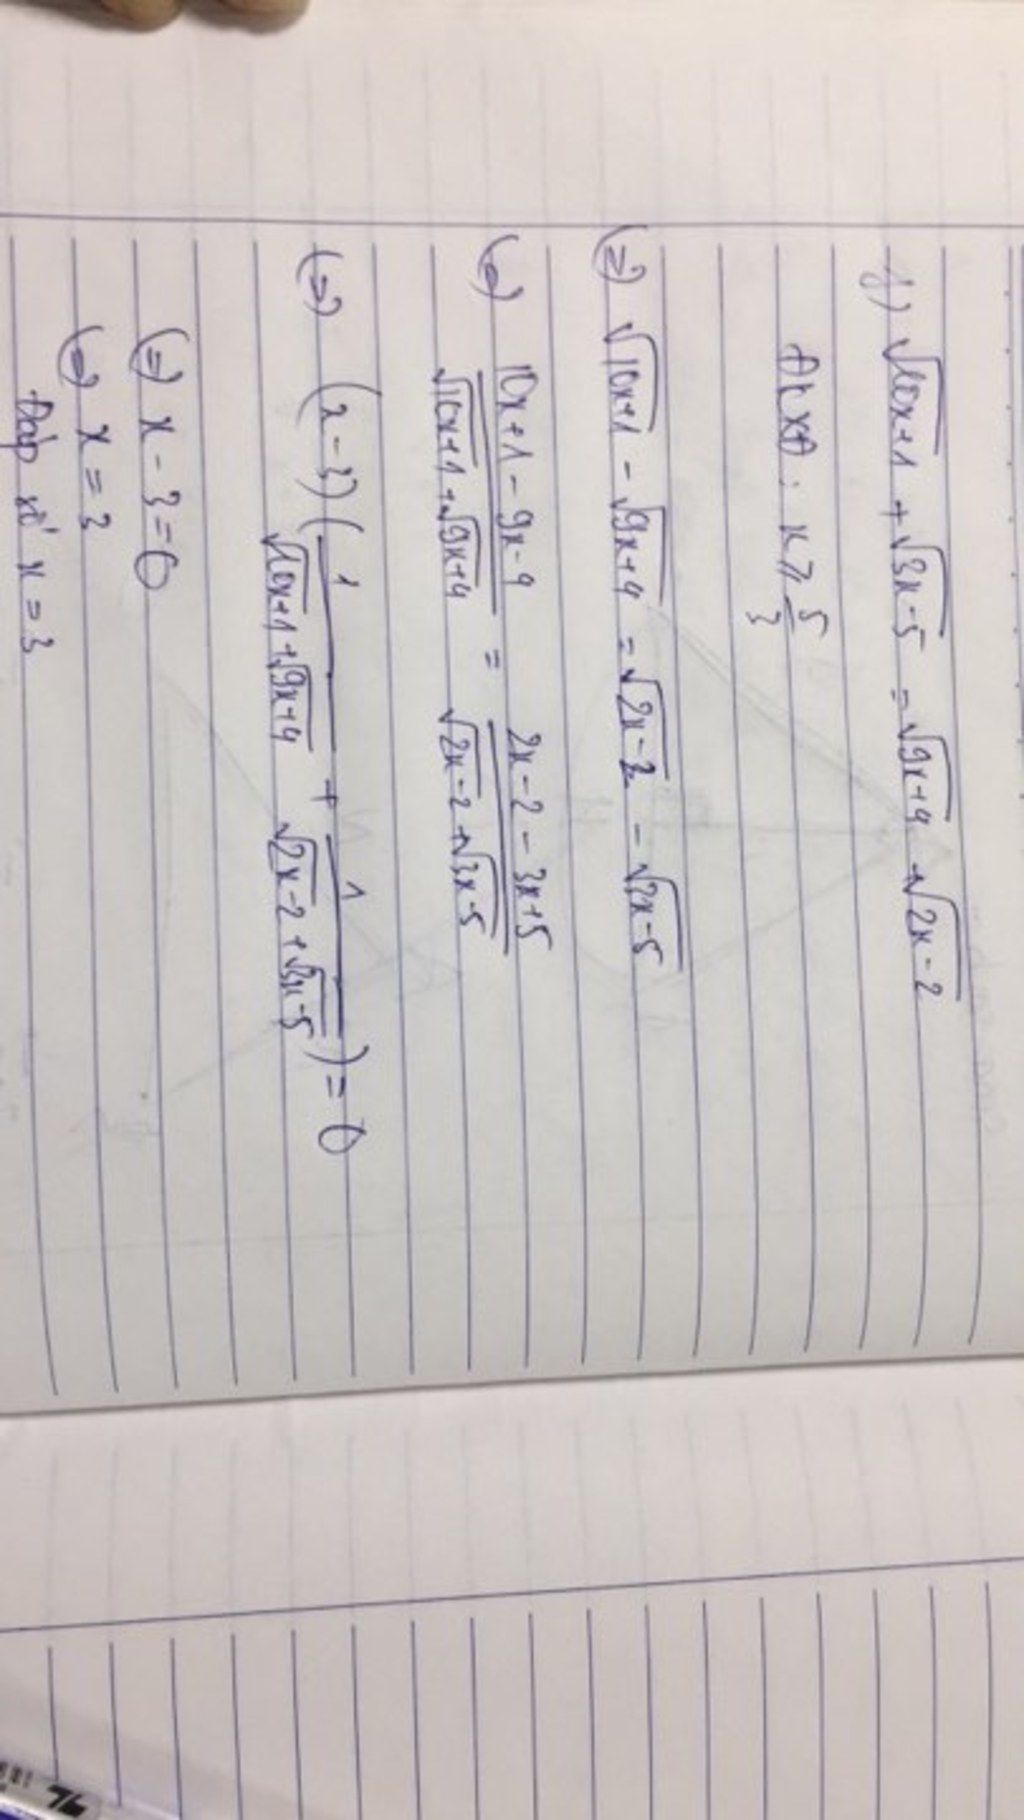 f) √10x+1 + √3x-5 = √9x+4 + √2x-2
Đkxđ: x ≥ 5/3
(=) √10x+1 - √9x+4 = √2x-2 - √3x-5
(=) (10x+1-9x-4)/(√10x+1 + √9x+4) = (2x-2-3x+5)/(√2x-2 + √3x-5)
(=) (x-3)(1/(√10x+1 + √9x+4) + 1/(√2x-2 + √3x-5)) = 0
(=) x-3=0
(=) x=3
Đáp số x=3